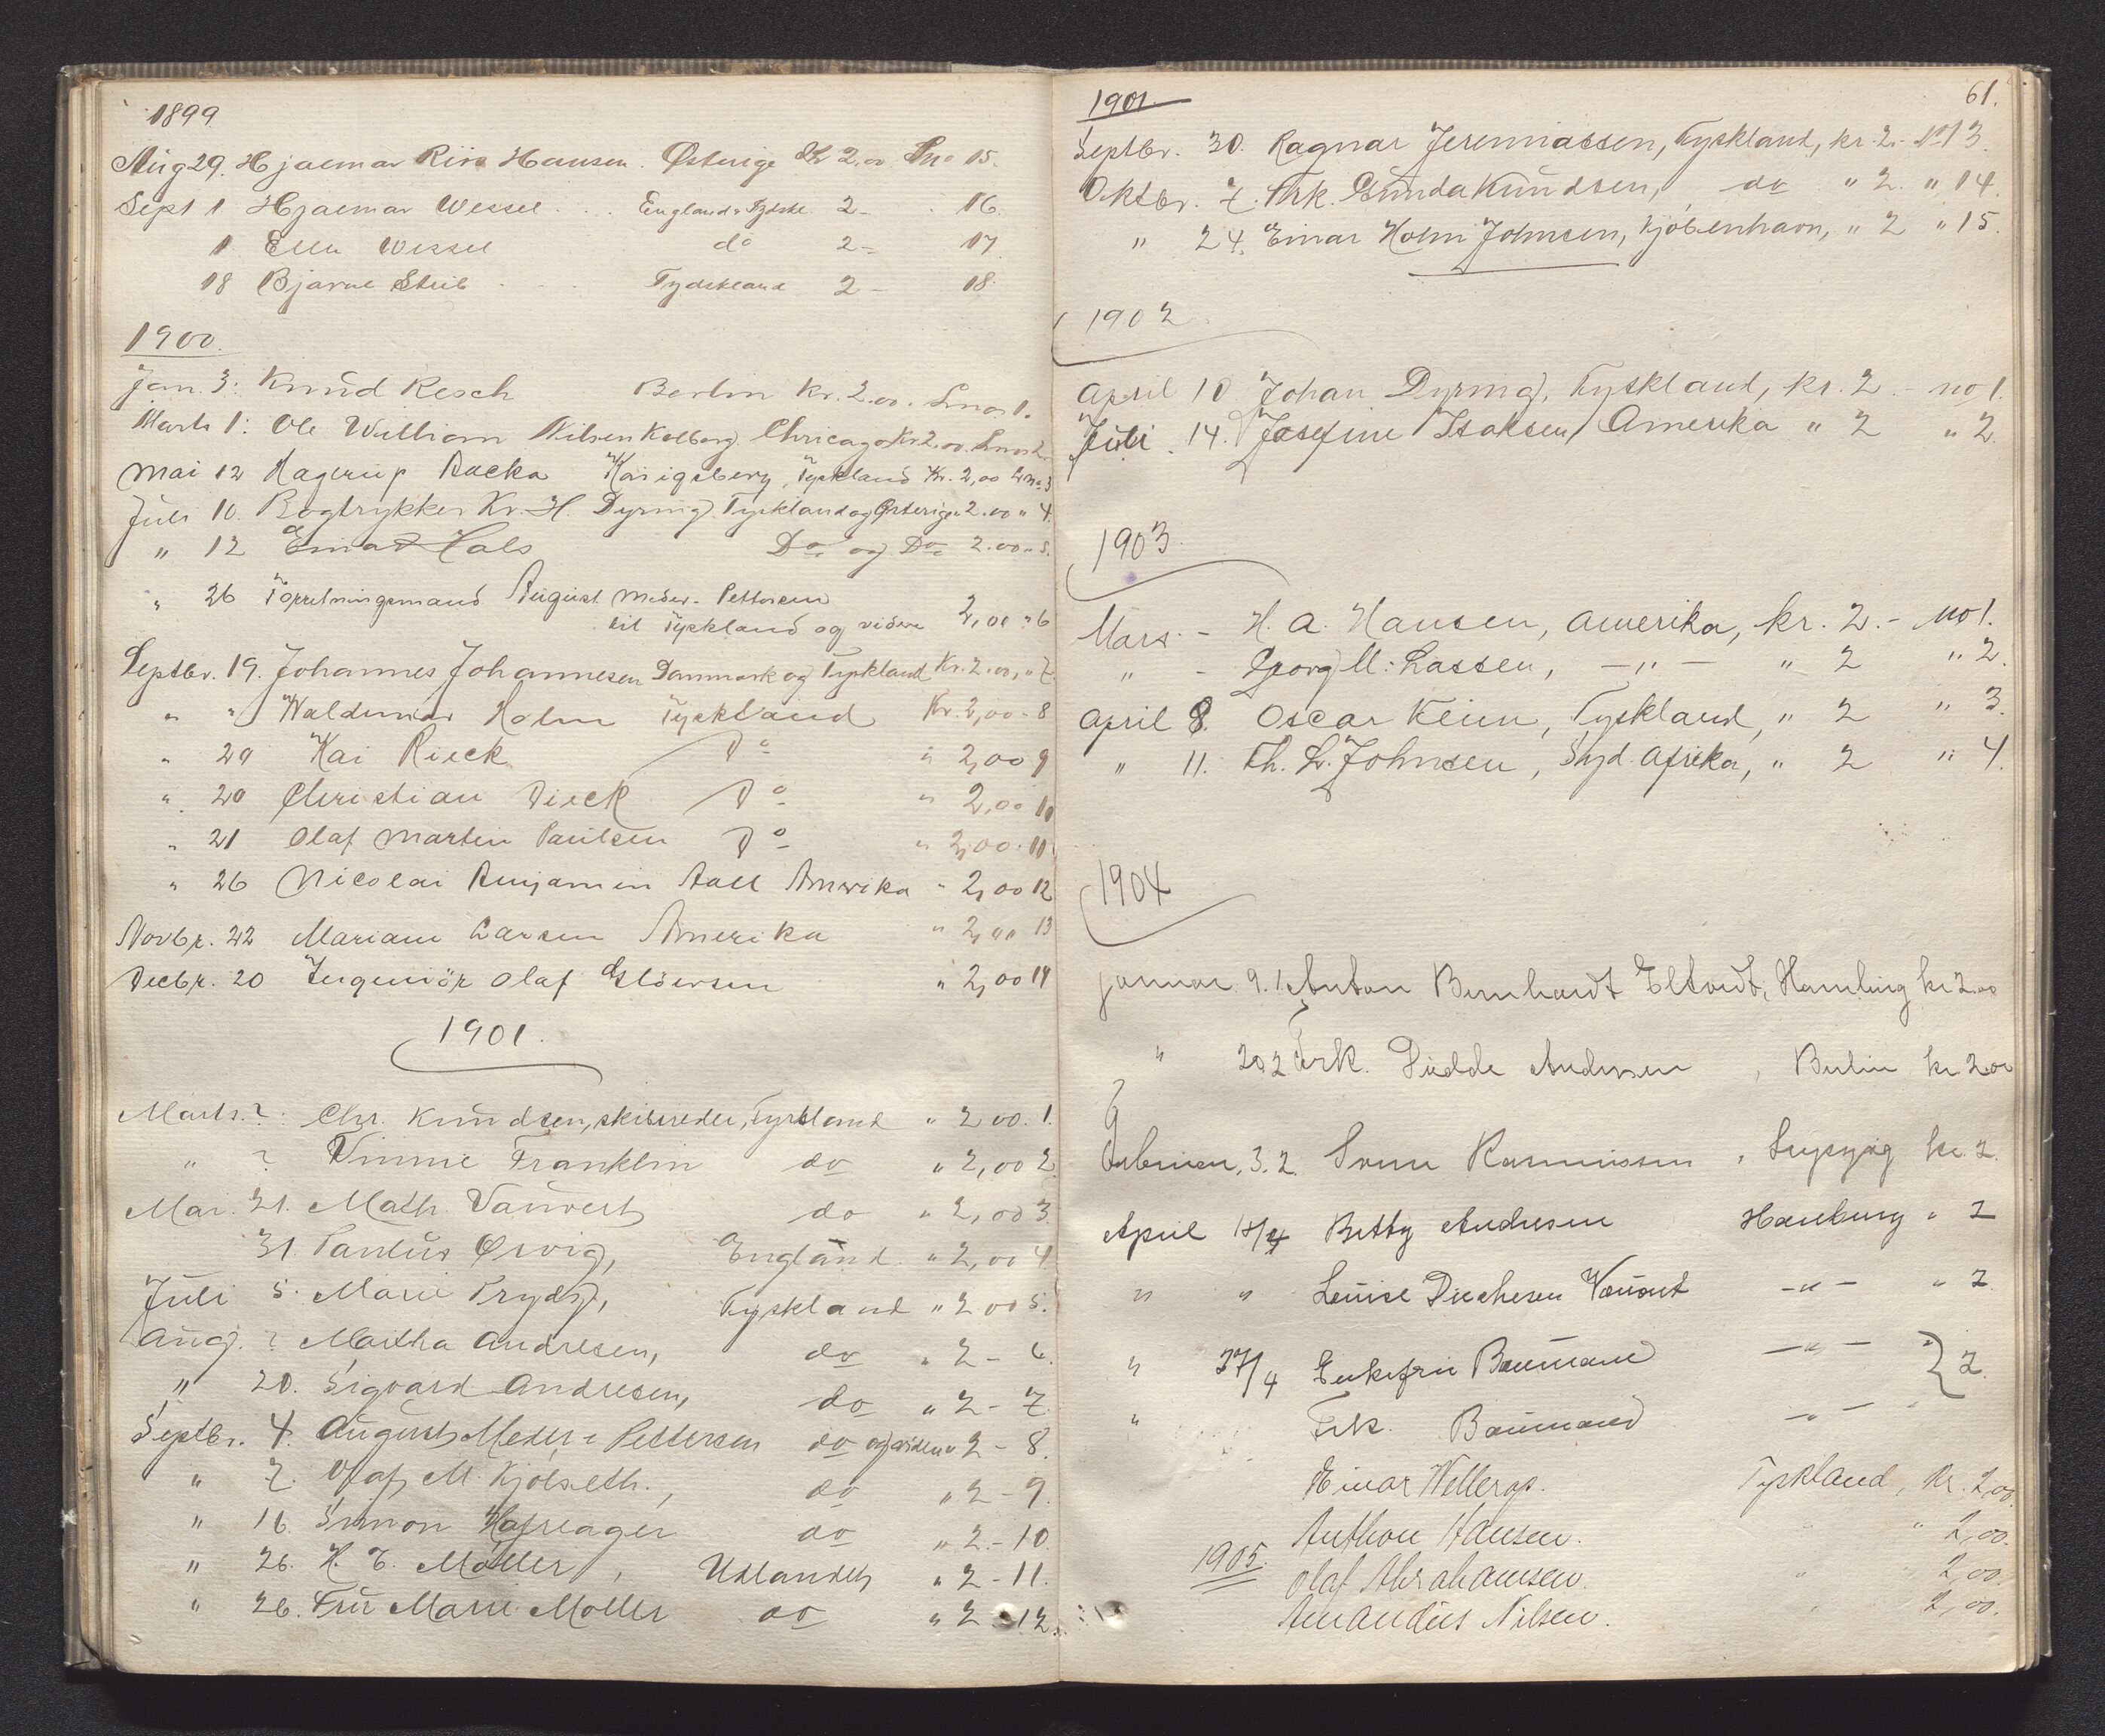 1899
Aug 29. Hjaemar Riis Hansen. Østerige Kr 2,00 Lno 15.
Sept 1. Hjaemar Wessel . . . England & Tydskl. 2- . 16.
1 Ella Wessel do 2- 17
18 Bjarne Steib Tydskland 2- 18.
1900.
Jan. 3. Knud Resch Berlin Kr. 2.00. Lno 1.
Marts 1. Ole William Nilsen Kolberg. Chricago Kr 2.00. Lno 2.
Mai 12 Hagerup Tyskland Kr. 2,00 Lno 3
Juli 10. Bogtrykker Kr. H. Dyring. Tyskland og Østerige 2.00 " 4.
" 12 Einar Hals Do og Do 2.00 " 5.
" 26 Forretningsmand August Meder-Pettersen
til Tyskland og videre 2,00 " 6
Septbr. 19. Johannes Johannesen Danmark og Tyskland Kr. 2.00, " 7
" " Waldemar Holm Tyskland Kr. 2,00 - 8
" 29 Kai Rieck Do " 2,00 9
" 20 Christian Rieck Do " 2,00 10
" 21 Olaf Martin Paulsen Do " 2,00. 11
" 26 Nicolai Benjamin Aall Amerika " 2,00 12
Novbr. 22 Mariane Larsen Amerika " 2,00 13
Decbr. 20 Ingeniör Olaf " 2,00 14
1901.
Marts. ? Chr. Knudsen, skibsreder, Tyskland " 2 00. 1.
" ? Vinnie Franklin do " 2,00 2
Mai. 21. Math. Vauvert do " 2,00 3.
31. Paulus Ørvig, England. " 2,00 4
Juli 5. Marie Prydz, Tyskland " 2 00 5.
Aug. ? Martha Andresen, do " 2 - 6.
" 20. Sigvard Andresen, do " 2 - 7
Septbr. 4. August Meder-Pettersen do og videre " 2 - 8.
" 7. Olaf M. Kjølseth., do " 2 - 9.
" 16. Simon Hafsager do " 2.- 10.
" 26. H. E. Møller, Udlandet " 2 - 11.
" 26. Fru Marie Møller do " 2 - 12.
1901. 61.
Septbr. 30. Ragnar Jeremiassen, Tyskland, kr. 2.- No 13.
Oktbr. 7. Frk. Gunda Knudsen, do " 2. " 14.
" 24. Einar Holm Johnsen, Kjøbenhavn, " 2 " 15.
1902.
April 10 Johan Dyring, Tyskland, kr. 2 - no 1.
Juli 14. Josefine Isaksen, Amerika " 2 " 2.
1903.
Mars - H. A. Hansen, Amerika, kr. 2.- No 1.
" - Georg M. Lassen, - " - " 2 " 2.
April 8. Oscar Keim, Tyskland, " 2 " 3.
" 11. Th. L. Johnsen, Syd. Afrika, " 2 " 4.
1904
januar 9. 1 Anton Bernhardt Eltvedt, Hamburg kr 2.00
" 20 2 Frk. Didde Andersen, Berlin kr 2.00
Februar, 3. 2. Rasmussen, Leipzig kr. 2.
April 18/4 Betty Andresen Hamburg " 2
" " Louise Vauvert - " - " 2
" 27/4 Enkefru Baumann - " - } 2.
" Frk. Baumann - " -
Einar Wellerop. Tyskland, Kr. 2,00.
Anthon Hansen. " " 2,00.
1905. Olaf Abrahamsen. " 2,00.
Amandus Nilsen. " 2,00.